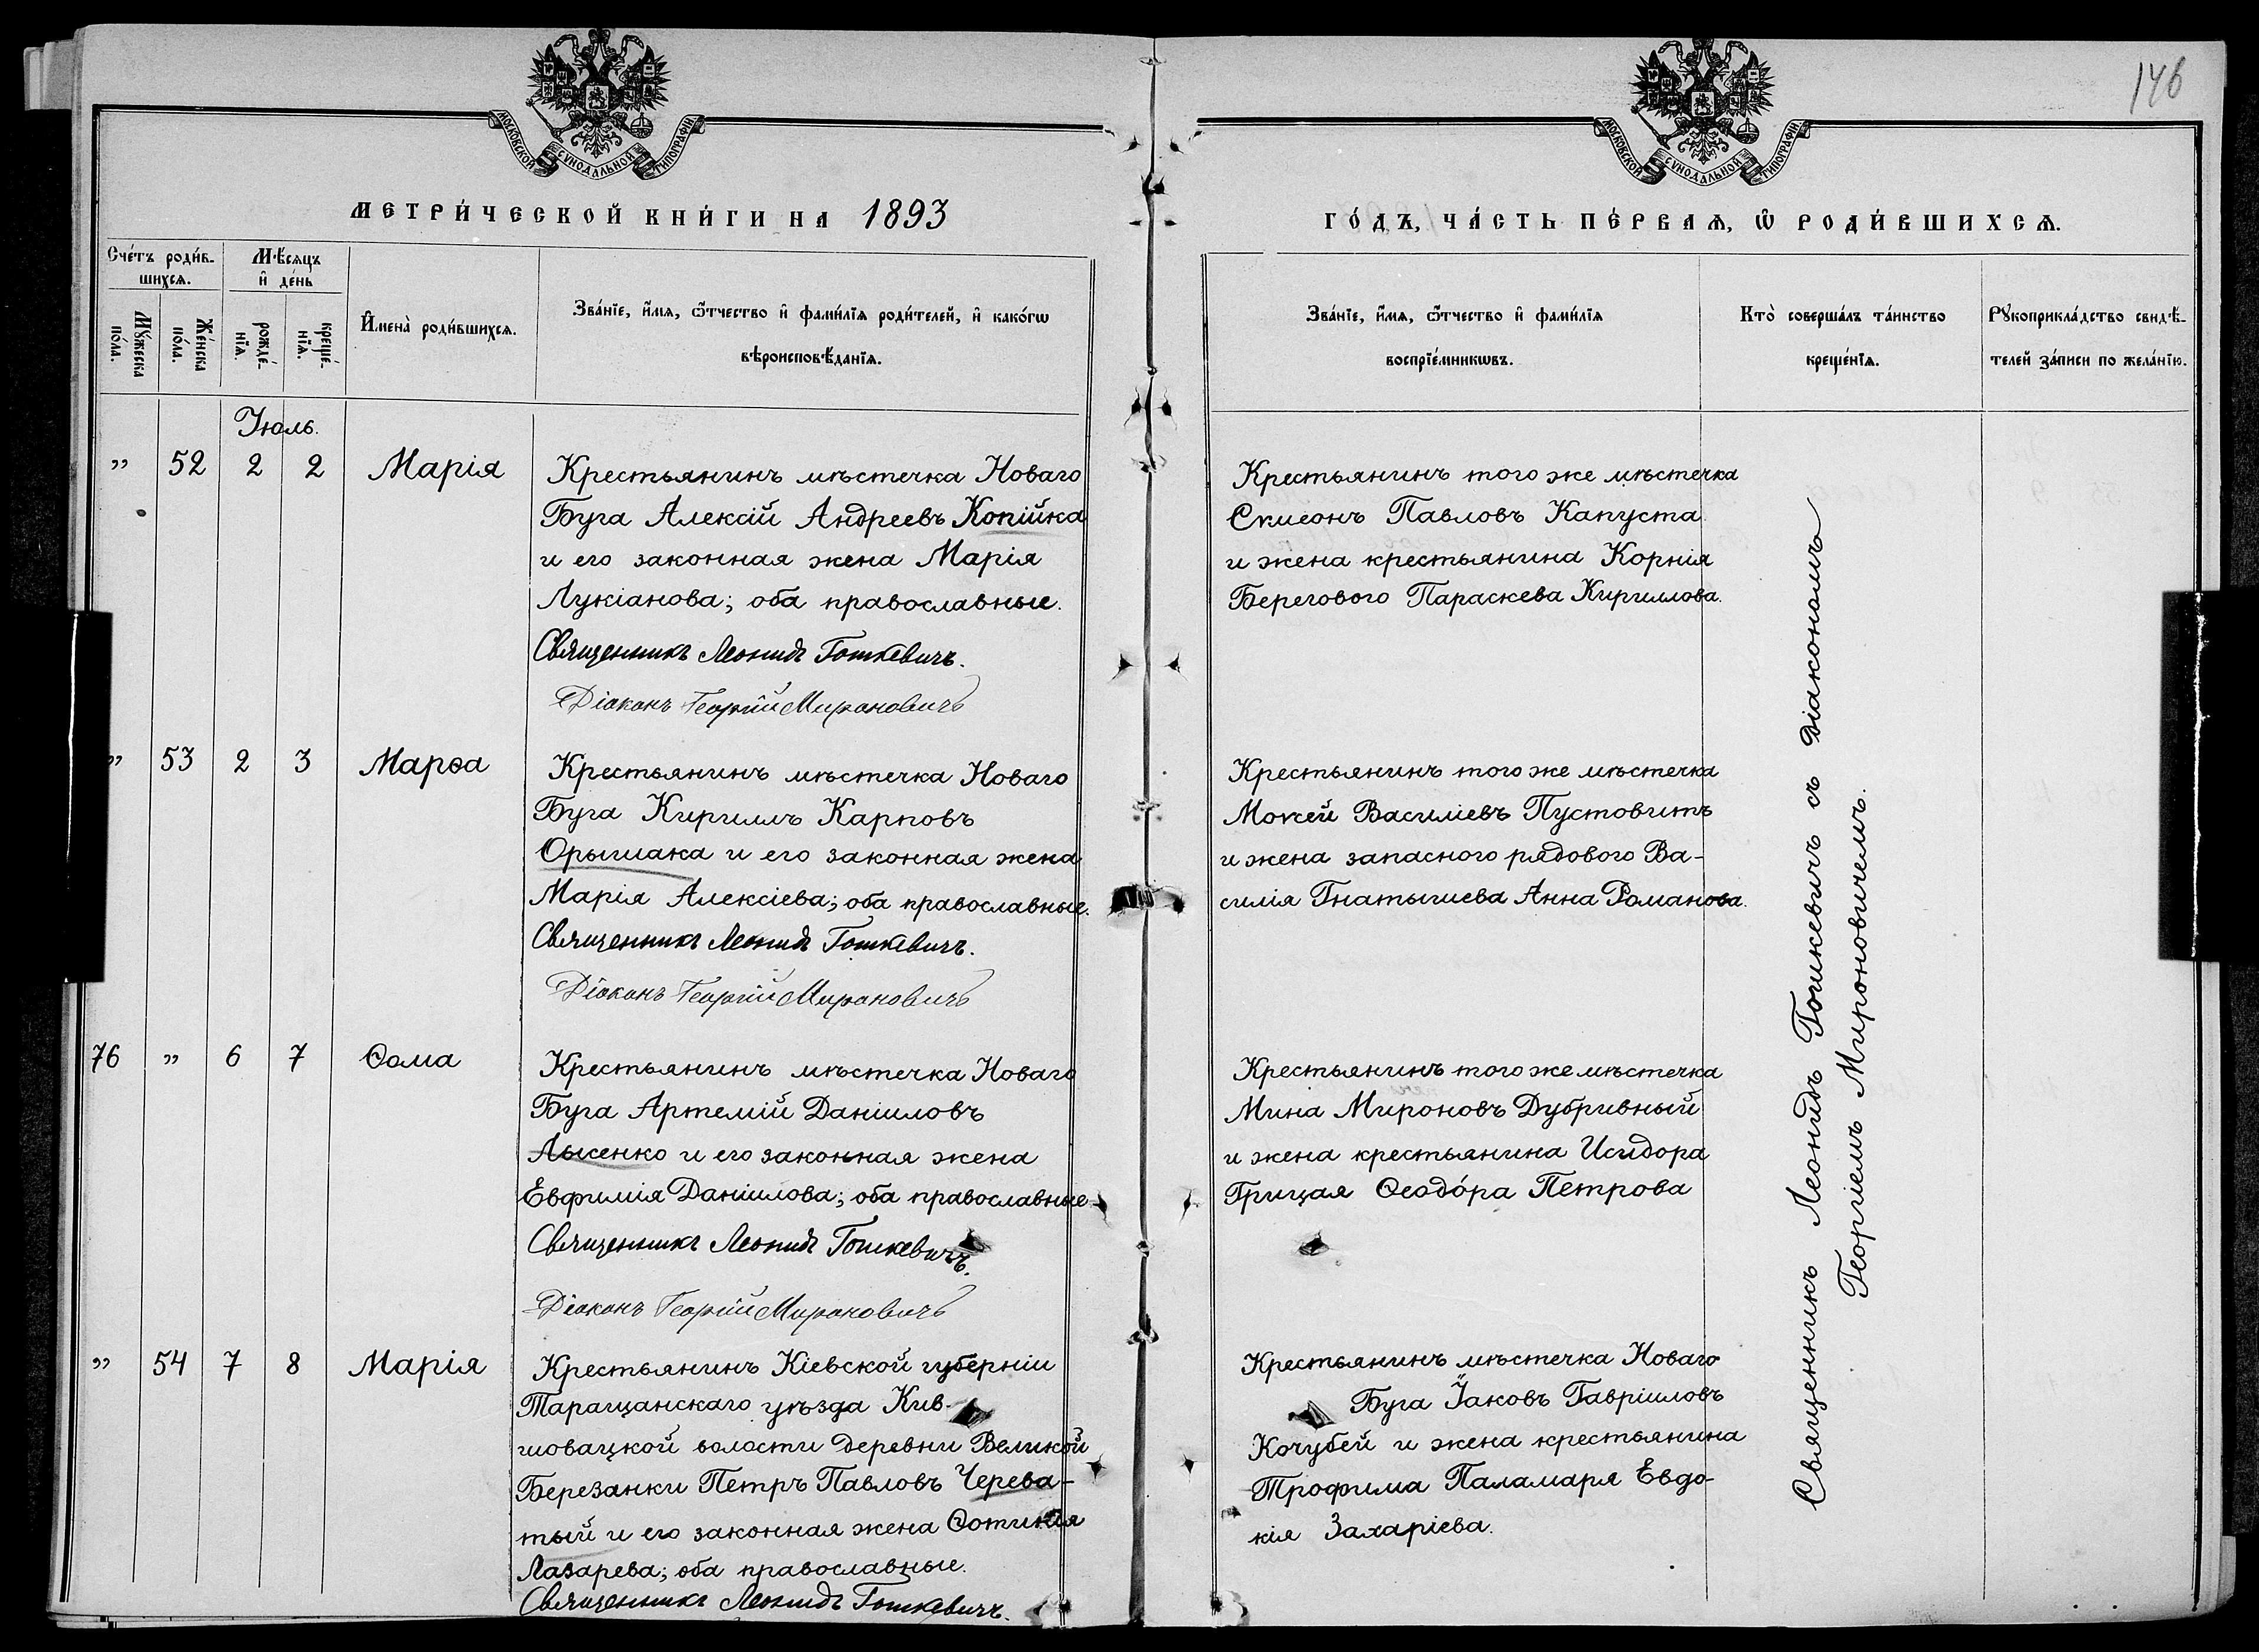 146
МОСКОВСКОЙ СѴНОДАЛЬНОЙ ТИПОГРАФІИ
МОСКОВСКОЙ СѴНОДАЛЬНОЙ ТИПОГРАФІИ
МЕТРИ́ЧЕСКОЙ КНИ́ГИ НА 1893
ГО́ДЪ, ЧА́СТЬ ПЕ́РВАѦ, Ѡ҆ РОДИ́ВШИХСѦ.
Сче́тъ роди́в-
шихсѧ.
Мꙋ́жеска
по́ла.
Же́нска
по́ла.
Мѣ́сяцъ
и҆ де́нь
рожде́-
нїѧ.
креще́-
нїѧ.
И҆мена̀ роди́вшихсѧ.
Зва́нїе, и҆́мѧ, ѻ҆́тчество и҆ фами́лїѧ роди́телей, и҆ како́гѡ
вѣроисповѣ́данїѧ.
Зва́нїе, и҆́мѧ, ѻ҆́тчество и҆ фами́лїѧ
воспрїе́мникѡвъ.
Кто̀ соверша́лъ та́инство
креще́нїѧ.
Рꙋкоприкла́дство свидѣ́-
телей за́писи по жела́нїю.
Іюль.
" 52 2 2 Марія
Крестьянинъ мѣстечка Новаго
Буга Алексій Андреевъ Копійка
и его законная жена Марія
Лукіанова; оба православные.
Священникъ Леонидъ Гошкевичъ.
Діаконъ Георгій Мироновичъ
Крестьянинъ того же мѣстечка
Симеонъ Павловъ Капуста
и жена крестьянина Корнія
Берегового Параскева Кириллова.
" 53 2 3 Марѳа
Крестьянинъ мѣстечка Новаго
Буга Кириллъ Карповъ
Орышака и его законная жена
Марія Алексіева; оба православные.
Священникъ Леонидъ Гошкевичъ.
Діаконъ Георгій Мироновичъ
Крестьянинъ того же мѣстечка
Мокей Василіевъ Пустовитъ
и жена запасного рядового Ва-
силія Гнатышева Анна Романова.
76 " 6 7 Ѳома
Крестьянинъ мѣстечка Новаго
Буга Артемій Даніиловъ
Лысенко и его законная жена
Евфимія Даніилова; оба православные
Священникъ Леонидъ Гошкевичъ.
Діаконъ Георгій Мироновичъ
Крестьянинъ того же мѣстечка
Мина Мироновъ Дубривный
и жена крестьянина Исидора
Грицая Ѳеодо́ра Петрова
" 54 7 8 Марія
Крестьянинъ Кіевской губерніи
Таращанскаго уѣзда Кив-
шовацкой волости деревни Великой
Березанки Петръ Павловъ Черева-
тый и его законная жена Фотинія
Лазарева; оба православные.
Священникъ Леонидъ Гошкевичъ.
Крестьянинъ мѣстечка Новаго
Буга Іаковъ Гавріиловъ
Кочубей и жена крестьянина
Трофима Паламаря Евдо-
кія Захаріева.
Священникъ Леонидъ Гошкевичъ съ діакономъ
Георгіемъ Мироновичемъ.